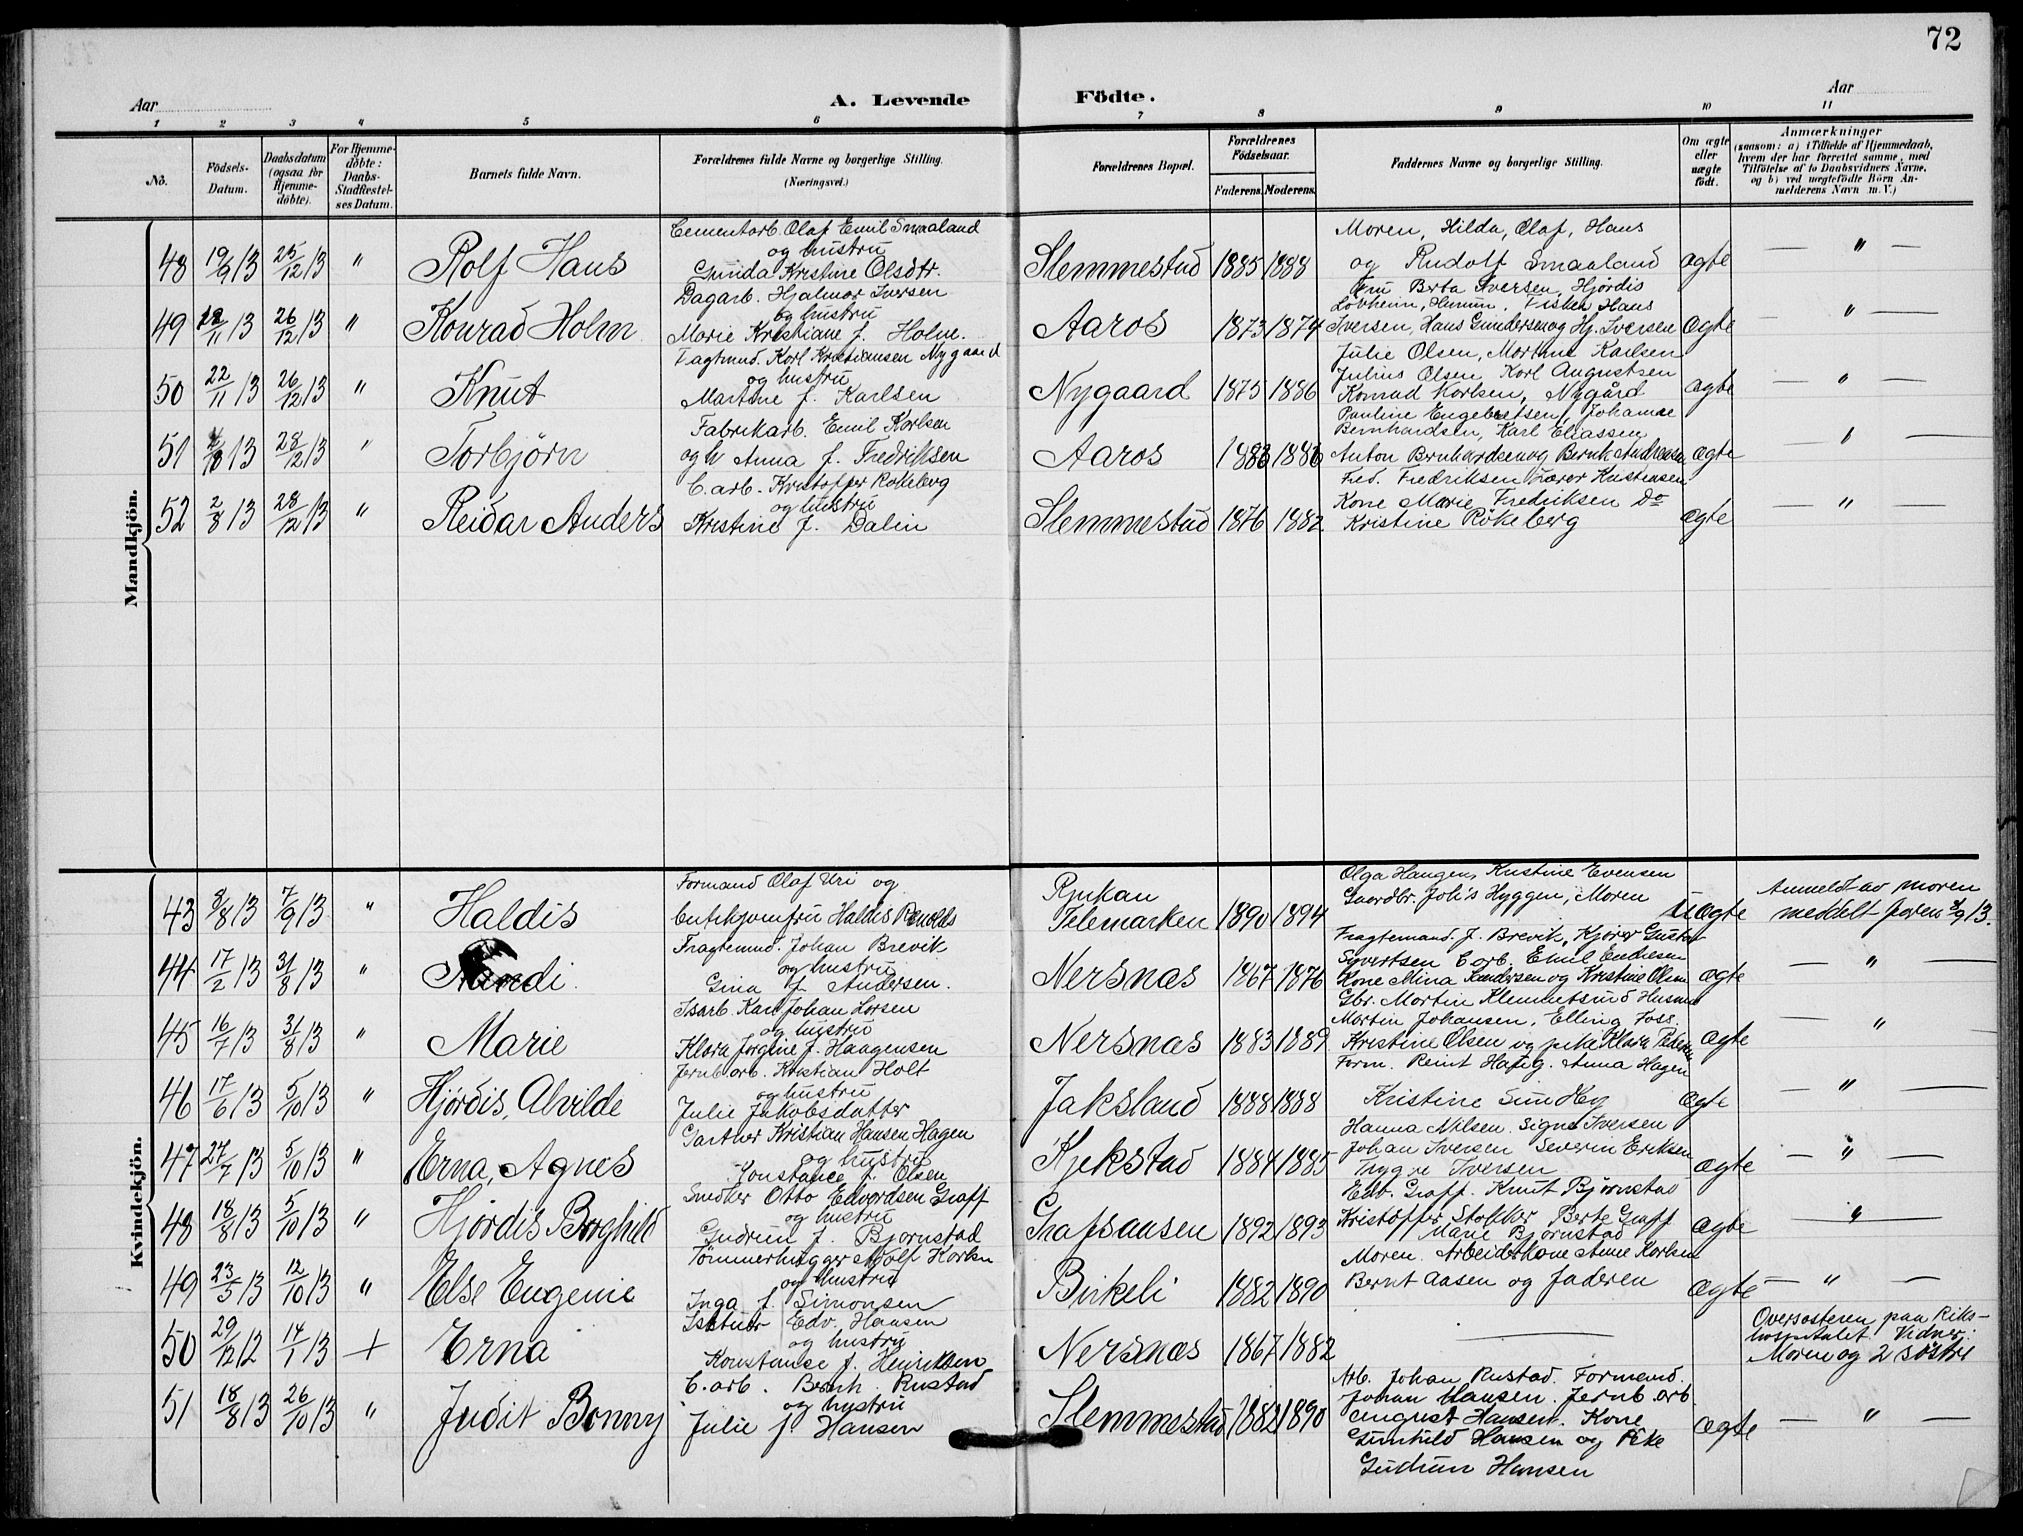 72
Aar
A. Levende Födte.
Aar
1 2 3 4 5 6 7 8 9 10 11
No. Födsels-Datum. Daabsdatum (ogsaa for Hjemme-döbte). For Hjemme-döbte: Daabs-Stadfæstel-ses Datum. Barnets fulde Navn. Forældrenes fulde Navne og borgerlige Stilling. (Næringsvei.) Forældrenes Bopæl. Forældrenes Födselsaar. Faderens. Moderens. Faddernes Navne og borgerlige Stilling. Om ægte eller uægte født. Anmærkninger (saasom: a) i Tilfælde af Hjemmedaab, hvem der har forrettet samme, med Tilföielse af to Daabsvidners Navne, og b) ved uægtefödte Börn An-melderens Navn m. V.)
Mandkjön.
Cementarb. Olaf Emil Smaaland
og hustru
Gunda Kristine Olsdtr.
Moren, Hilda, Olaf, Hans
og Rudolf Smaaland
48 19/9 13 25/12 13 " Rolf Hans Slemmestad 1885 1888 ægte — " —
Dagarb. Hjalmar Iversen
og hustru
Marie Kristiane f. Holm.
Fru Berta Iversen, Hjördis
Lövheim, Hurum, Fisker Hans
Iversen, Hans Gundersen og Hj. Iversen
49 12/11 13 26/12 13 " Konrad Holm Aaros 1873 1874 ægte " —
Fagtmnd. Karl Kristiansen Nygaard
og hustru
Martine f. Karlsen
Julie Olsen, Martine Karlsen
Julius Olsen, Karl Augustsen
Konrad Karlsen, Nygård
50 22/11 13 26/12 13 " Knut Nygaard 1875 1886 ægte — " —
Fabrikarb. Emil Karlsen
og h Anna f. Fredriksen
Pauline Engebretsen, Johanne
Bernhardsen, Karl Eliassen
Anton Bernhardsen og Bernh. Andresen
51 /10 13 28/12 13 " Torbjörn Aaros 1883 1886 ægte — " —
C. arb. Kristoffer Rökeberg
og hustru
Kristine f. Dalen
Fred. Fredriksen Lærer Kristensen
Kone Marie Fredriksen Do
Kristine Rökeberg
52 2/8 13 28/12 13 " Reidar Anders Slemmestad 1876 1882 ægte — " —
Kvindekjön.
Formand Olaf Uri og
Butikjomfru Haldis
Rjukan
Telemarken
Olga Haugen, Kristine Evensen
Gaardbr. Joh's Hyggen, Moren
Anmeldt av moren
meddelt faren 8/9 13.
43 8/8 13 7/9 13 " Haldis 1890 1894 uægte
Fragtemnd. Johan Brevik
og hustru
Gina f. Andersen.
Fragtemand. J. Brevik, Kjörer Gustav
Syvertsen C. arb. Emil Endresen
Kone Mina Sandersen og Kristine Olsen
44 17/2 13 31/8 13 " Nersnæs 1867 1876 ægte — " —
Isarb. Karl Johan Larsen
og hustru
Klara Jörgine f. Haagensen
Gbr. Martin Klemmetsrud Husmd
Martin Johansen, Elling Foss.
Kristine Olsen og pike Klara Pedersen
45 16/7 13 31/8 13 " Marie Nersnæs 1883 1889 ægte — " —
Jernb. arb. Kristian Holt
og hustru
Julie Jakobsdatter
Form. Reint Hafig. Anna Hagen
Kristine
46 17/6 13 5/10 13 " Hjördis, Alvilde Jaksland 1888 1888 ægte — " —
Gartner Kristian Hansen Hagen
og hustru
Konstance f. Olsen
Hanna Nilsen. Signe Iversen
Johan Iversen Severin Eriksen
Trygve Iversen
47 27/7 13 5/10 13 " Erna, Agnes Kjekstad 1884 1885 ægte — " —
Snedker Otto Edvardsen Graff
og hustru
Gudrun f. Bjørnstad
Edv. Graff. Knut Bjørnstad
Kristoffer Stokker Berte Graff
Marie Bjørnstad
48 18/8 13 5/10 13 " Hjördis Borghild Grafsaasen 1892 1893 ægte — " —
Tömmerhugger Adolf Karlsen
og hustru
Inga f. Simonsen
Moren. Arbeiderkone Anne Karlsen
Bernt Aasen og faderen
49 23/5 13 12/10 13 " Else Eugenie Birkeli 1882 1890 ægte — " —
Edv. Hansen
og hustru
Konstanse f. Henriksen
Oversøsteren paa Riks-
hospitalet. Vidner:
Moren og 2 søstre
50 29/12 12 14/1 13 + Erna Nersnæs 1867 1882 —
C. arb. Bernh. Rustad
og hustru
Julie f. Hansen
Arb. Johan Rustad. Formand.
Johan Hansen. Jernb. arb.
August Hansen. Kone
Gunhild Hansen og Pike
Gudrun Hansen
51 18/8 13 26/10 13 " Judit Bonny Slemmestad 1882 1890 ægte — " —